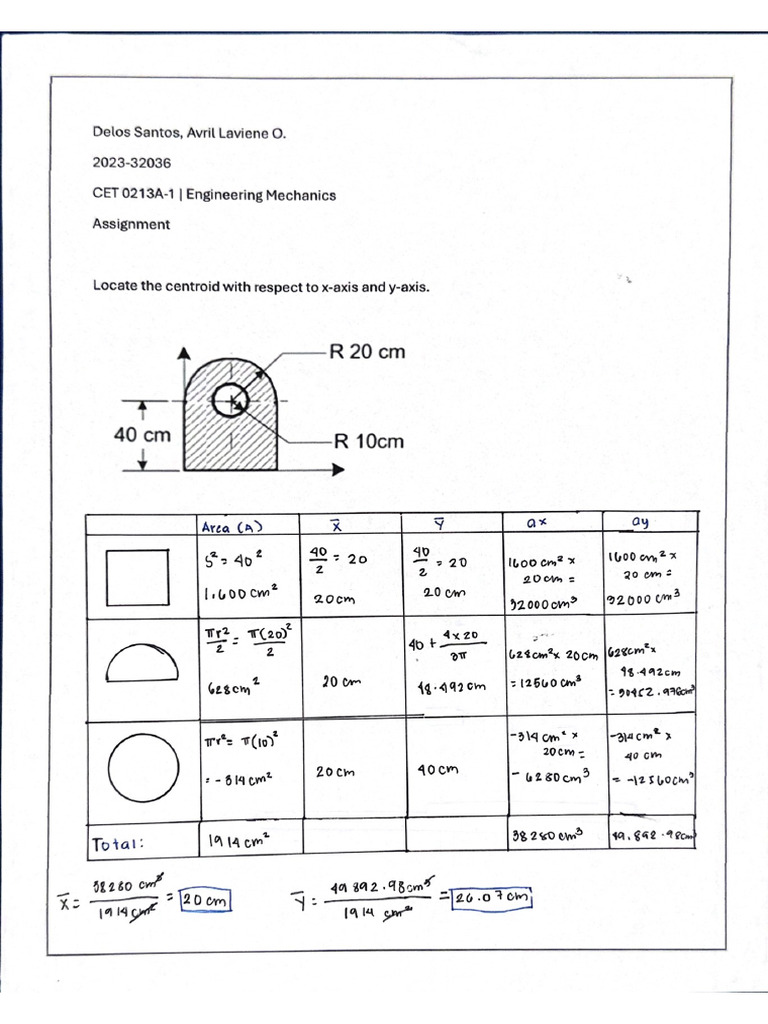 Delos Santos, Avril Laviene O.
2023-32036
CET 0213A-1 | Engineering Mechanics
Assignment
Locate the centroid with respect to x-axis and y-axis.
R 20 cm
40 cm
R 10cm
Area (A) X̅ Y̅ ax ay
s² = 40²
1,600 cm²
40/2 = 20
20cm
40/2 = 20
20 cm
1600 cm² x
20cm =
32000cm³
1600 cm² x
20 cm =
32000 cm³
πr²/2 = π(20)²/2
628cm²
20 cm
40 + 4x20/3π
48.492cm
628cm² x 20cm
= 12560 cm³
628cm² x
48.492cm
= 30452.976cm³
πr² = π(10)²
= -314cm²
20cm
40cm
-314 cm² x
20cm =
- 6280cm³
-314cm² x
40 cm
= -12560cm³
Total: 1914 cm² 38280 cm³ 49,892.98cm³
X̅ = 38280 cm³/1914cm² = 20cm
Y̅ = 49892.98cm³/1914 cm² = 26.07cm